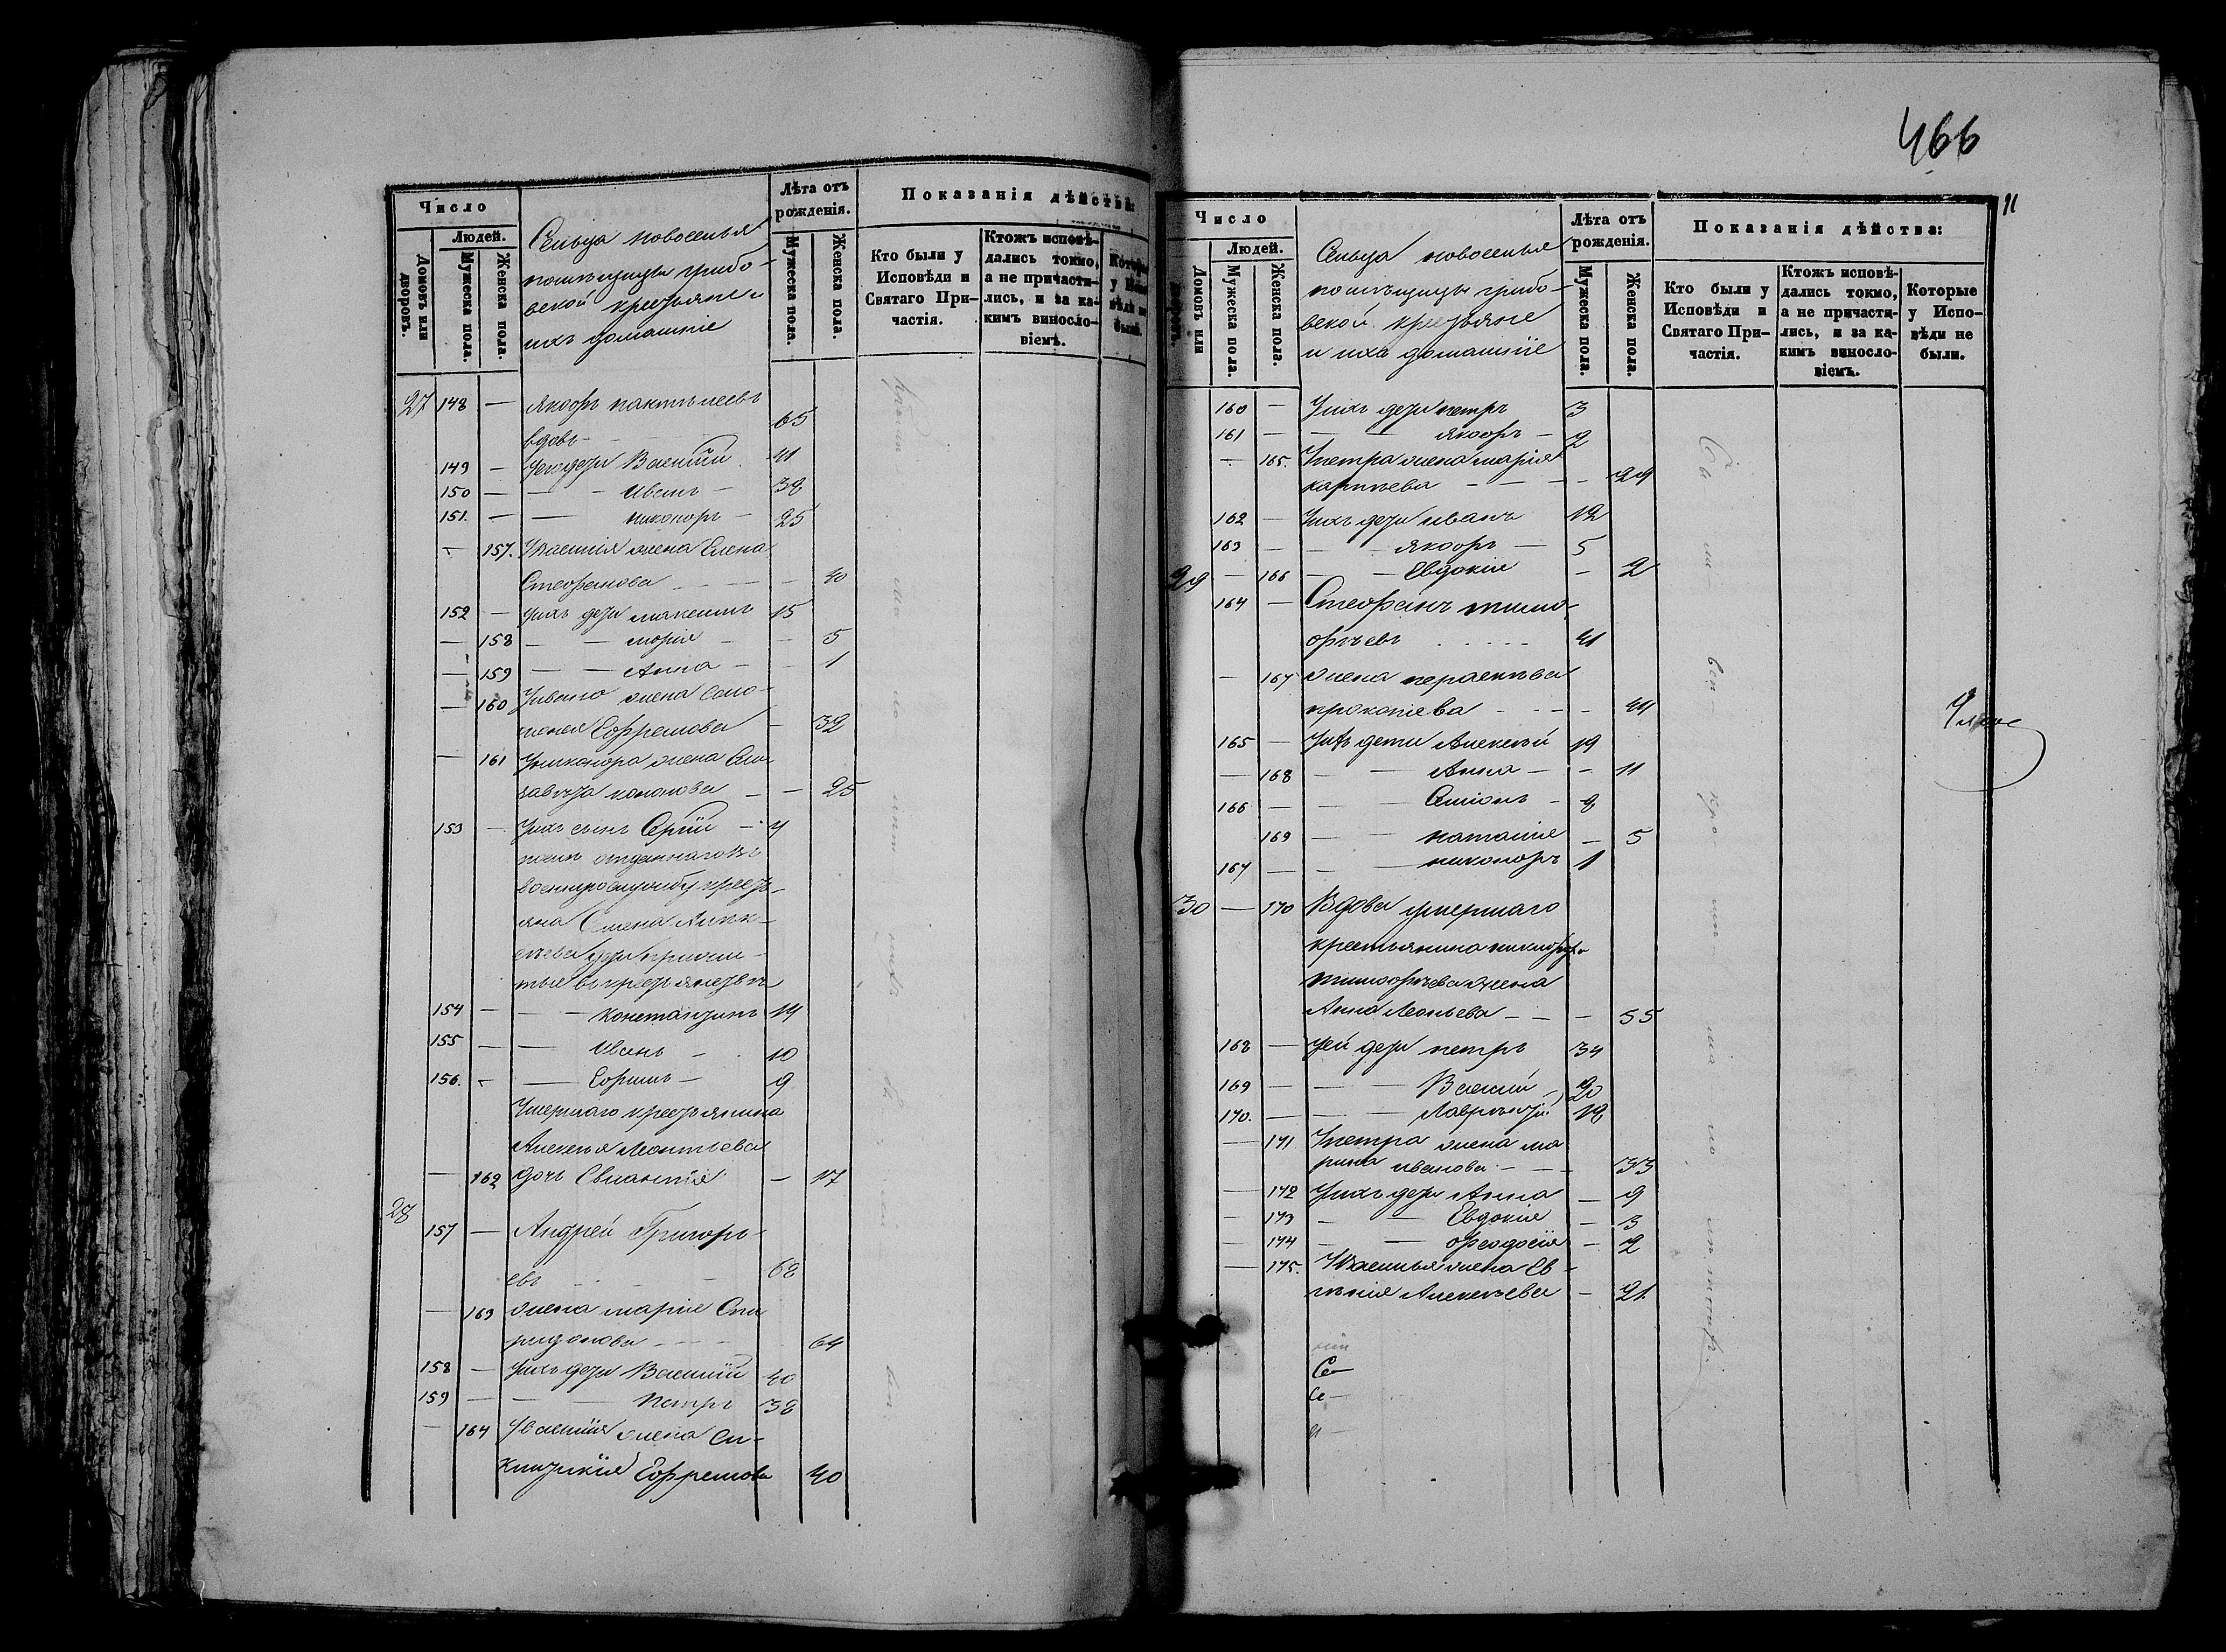 Число
Людей.
Домовъ или дворовъ.
Мужеска пола.
Женска пола.
Сельца новоселья
помѣщицы грибо-
вской крестьяне и
ихъ домашніе
Лѣта отъ рожденія.
Мужеска пола.
Женска пола.
Показанія дѣйства:
Кто были у Исповѣди и Святаго При-частія.
Ктожъ исповѣ-дались токмо, а не причасти-лись, и за ка-кимъ винословіемъ.
27 148 —
вдовъ - 65
149 — Его дѣти Василій 41
150 — — Иванъ — 38
151. — — никоноръ — 25
— 157. У Василія жена Елена
Стефанова — 40
152 — Ихъ дети максимъ 15
— 158 — — марія — — 5
— 159 — — Анна — — 1
— 160 У Ивана жена Соло-
монея Ефремова — 32
— 161 У никонора жена Ели-
завета кононова — — 25
153 — Ихъ сынъ Сергій — 4
отданнаго въ
военную службу кресть-
яна
154 — — Констанзинъ 14
155 — — Иванъ — 10
156. — — Ефимъ — 9
Умершаго крестьянина
Алексея Леонтьева
— 162 дочь Евлампія — 17
28
157 — Андрей Григорь-
евъ — 68
— 163 жена марія Спи-
ридонова — 64
158 — Ихъ дети Василій 40
159 — — Петръ 38
— 164 У Василія жена
Ефремова 40
466
11
Число
Людей.
Домовъ или дворовъ.
Мужеска пола.
Женска пола.
Сельца новоселья
помѣщицы грибо-
вской крестьяне
и ихъ домашніе
Лѣта отъ рожденія.
Мужеска пола.
Женска пола.
Показанія дѣйства:
Кто были у Исповѣди и Святаго При-частія.
Ктожъ исповѣ-дались токмо, а не причасти-лись, и за ка-кимъ винословіемъ.
Которые у Испо-вѣди не были.
160 — Ихъ дети петръ 3
161 — — Якофъ — 2
— 165. У петра жена марія
карпѣева — — — 29
162 — Ихъ дети иванъ 12
163 — — Якофъ — 5
29 — 166 — — Евдокія — 2
164 — Стефанъ тимо-
фѣевъ 41
— 167 жена
прокопіева — — — 44
165 — Ихъ дети Алексѣй 19
— 168 — — Анна — — 11
166 — — Симіонъ — 8
169 — — наталія — 5
167 — — никоноръ 1
30 — 170 Вдова умершаго
крестьянина никифора
тимофѣева жена
Анна Леоньева — — — 55
168 — У ей дети петръ 34
169 — — — Василій 20
170. — — — Лаврентій 18
— 171 У петра жена ма
рина иванова — — 33
— 172 Ихъ дети Анна — 9
— 173 — — Евдокія — 3
— 174 — — феодосія — 2
— 175. У Василья жена Ев-
генія Алексѣева — 21